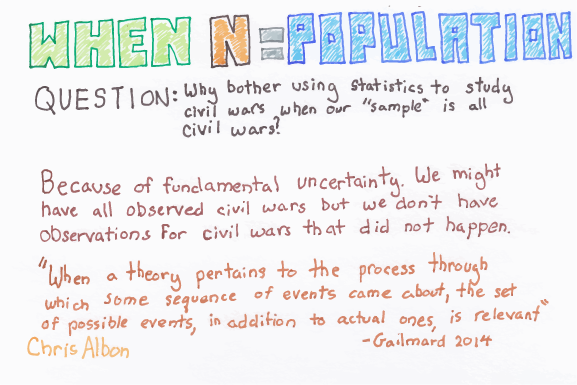 WHEN N=POPULATION
QUESTION: Why bother using statistics to study
civil wars when our "sample" is all
civil wars?
Because of fundamental uncertainty. We might
have all observed civil wars but we don't have
observations for civil wars that did not happen.
"When a theory pertains to the process through
which some sequence of events came about, the set
of possible events, in addition to actual ones, is relevant"
-Gailmard 2014
Chris Albon